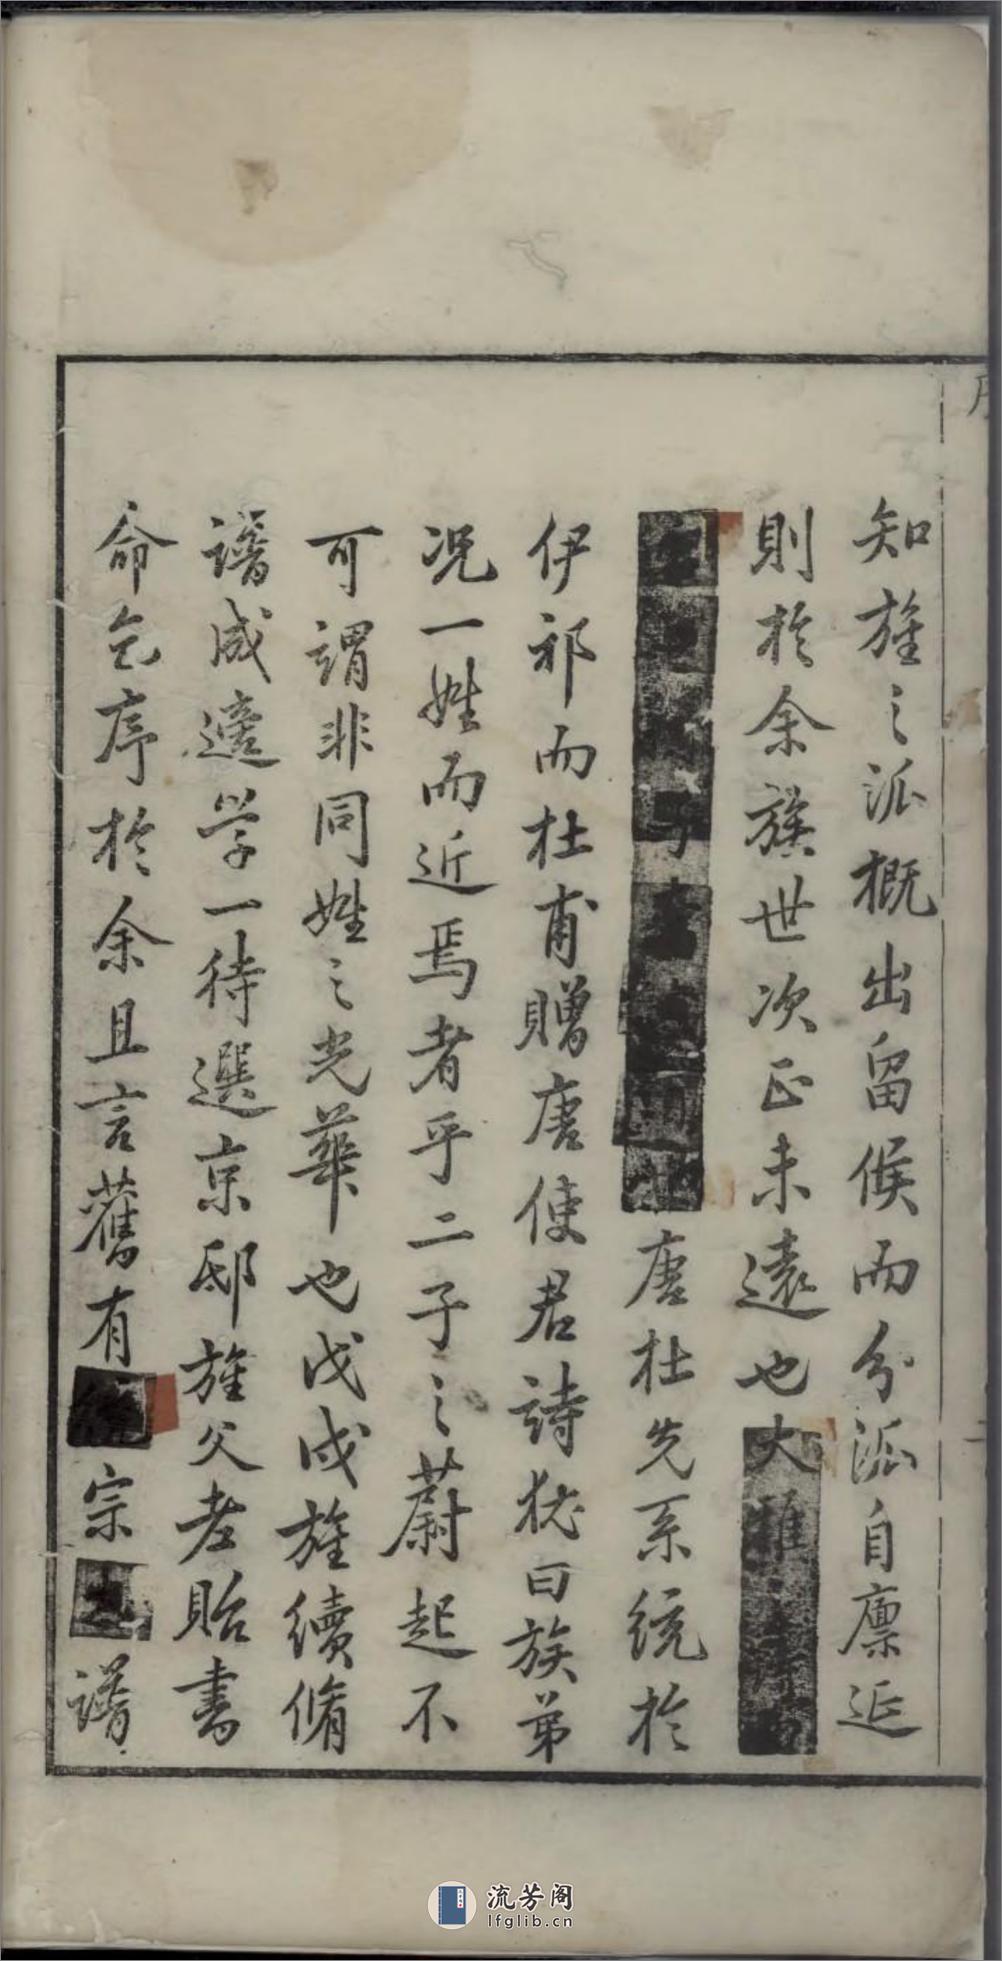 知旌之派概出留候而分派自廪延
則於余族世次正未遠也大雅
唐杜先系統於
伊祁而杜甫贈唐使君詩猶曰族弟
况一姓而近焉者乎二子之蔚起不
可謂非同姓之光華也戊戌旌續脩
譜成適学一待選京邸旌父老貽書
命乞序於余且言舊有宗譜
流芳阁
lfglib.cn